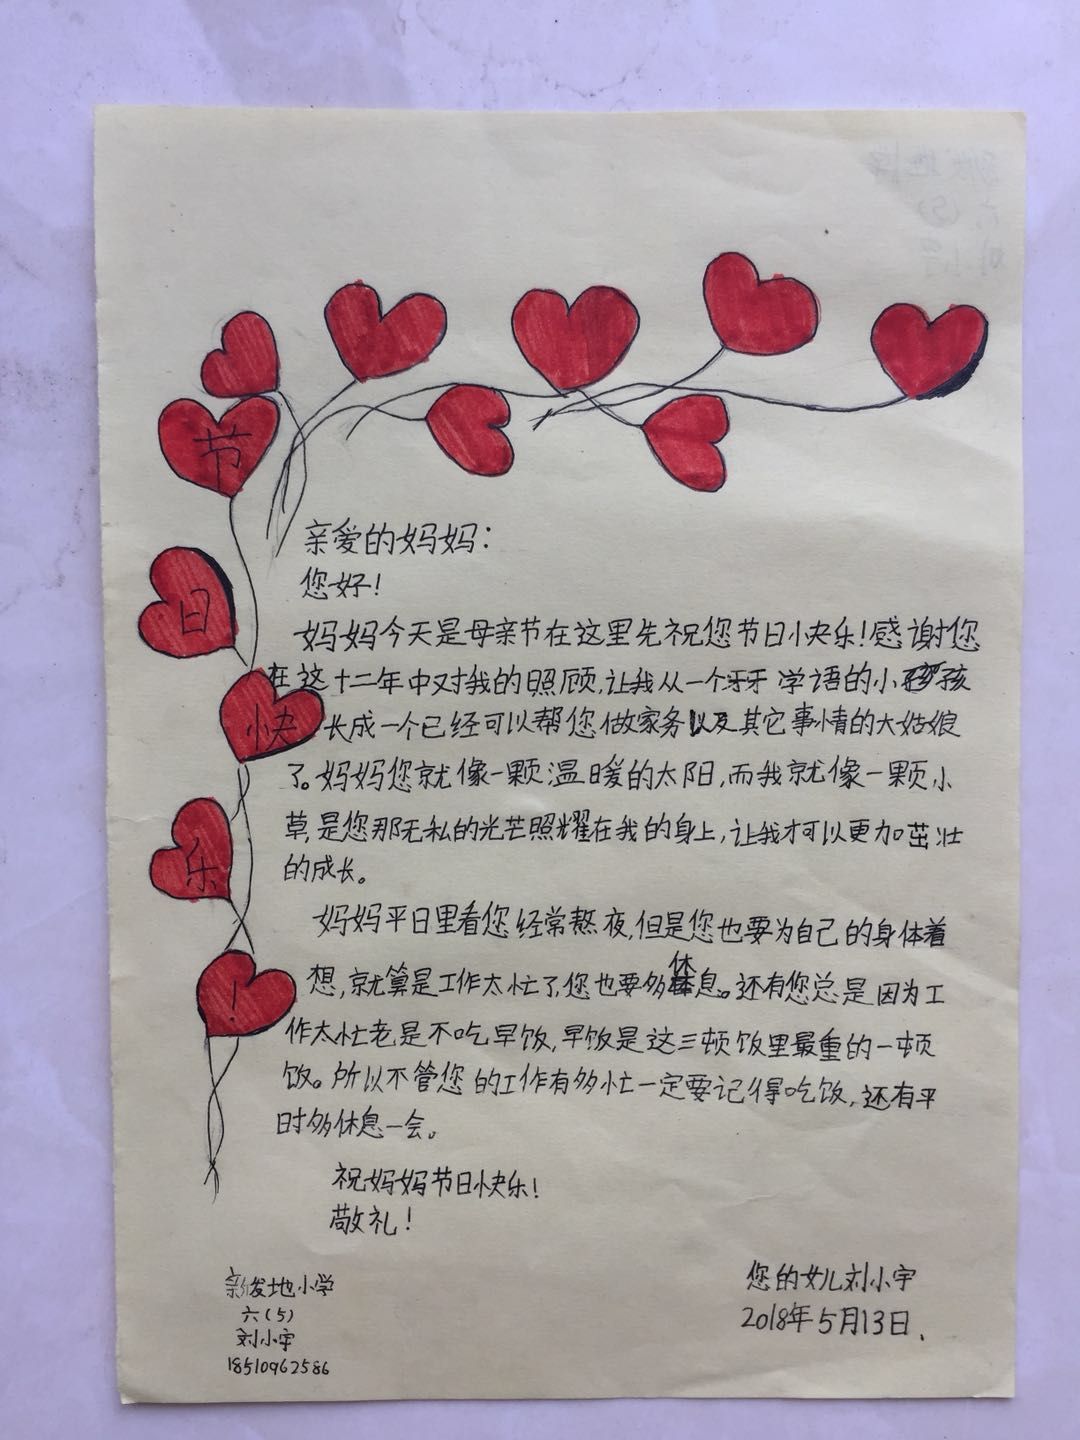 节
日
快
乐
！
亲爱的妈妈：
您好！
妈妈今天是母亲节在这里先祝您节日快乐！感谢您
在这十二年中对我的照顾，让我从一个牙牙学语的小孩
长成一个已经可以帮您做家务以及其它事情的大姑娘
了。妈妈您就像一颗温暖的太阳，而我就像一颗小
草，是您那无私的光芒照耀在我的身上，让我才可以更加茁壮
的成长。
妈妈平日里看您经常熬夜，但是您也要为自己的身体着
想，就算是工作太忙了，您也要多休息。还有您总是因为工
作太忙老是不吃早饭，早饭是这三顿饭里最重的一顿
饭。所以不管您的工作有多忙一定要记得吃饭，还有平
时多休息一会。
祝妈妈节日快乐！
敬礼！
您的女儿刘小宇
2018年5月13日.
新发地小学
六(5)
刘小宇
18510962586